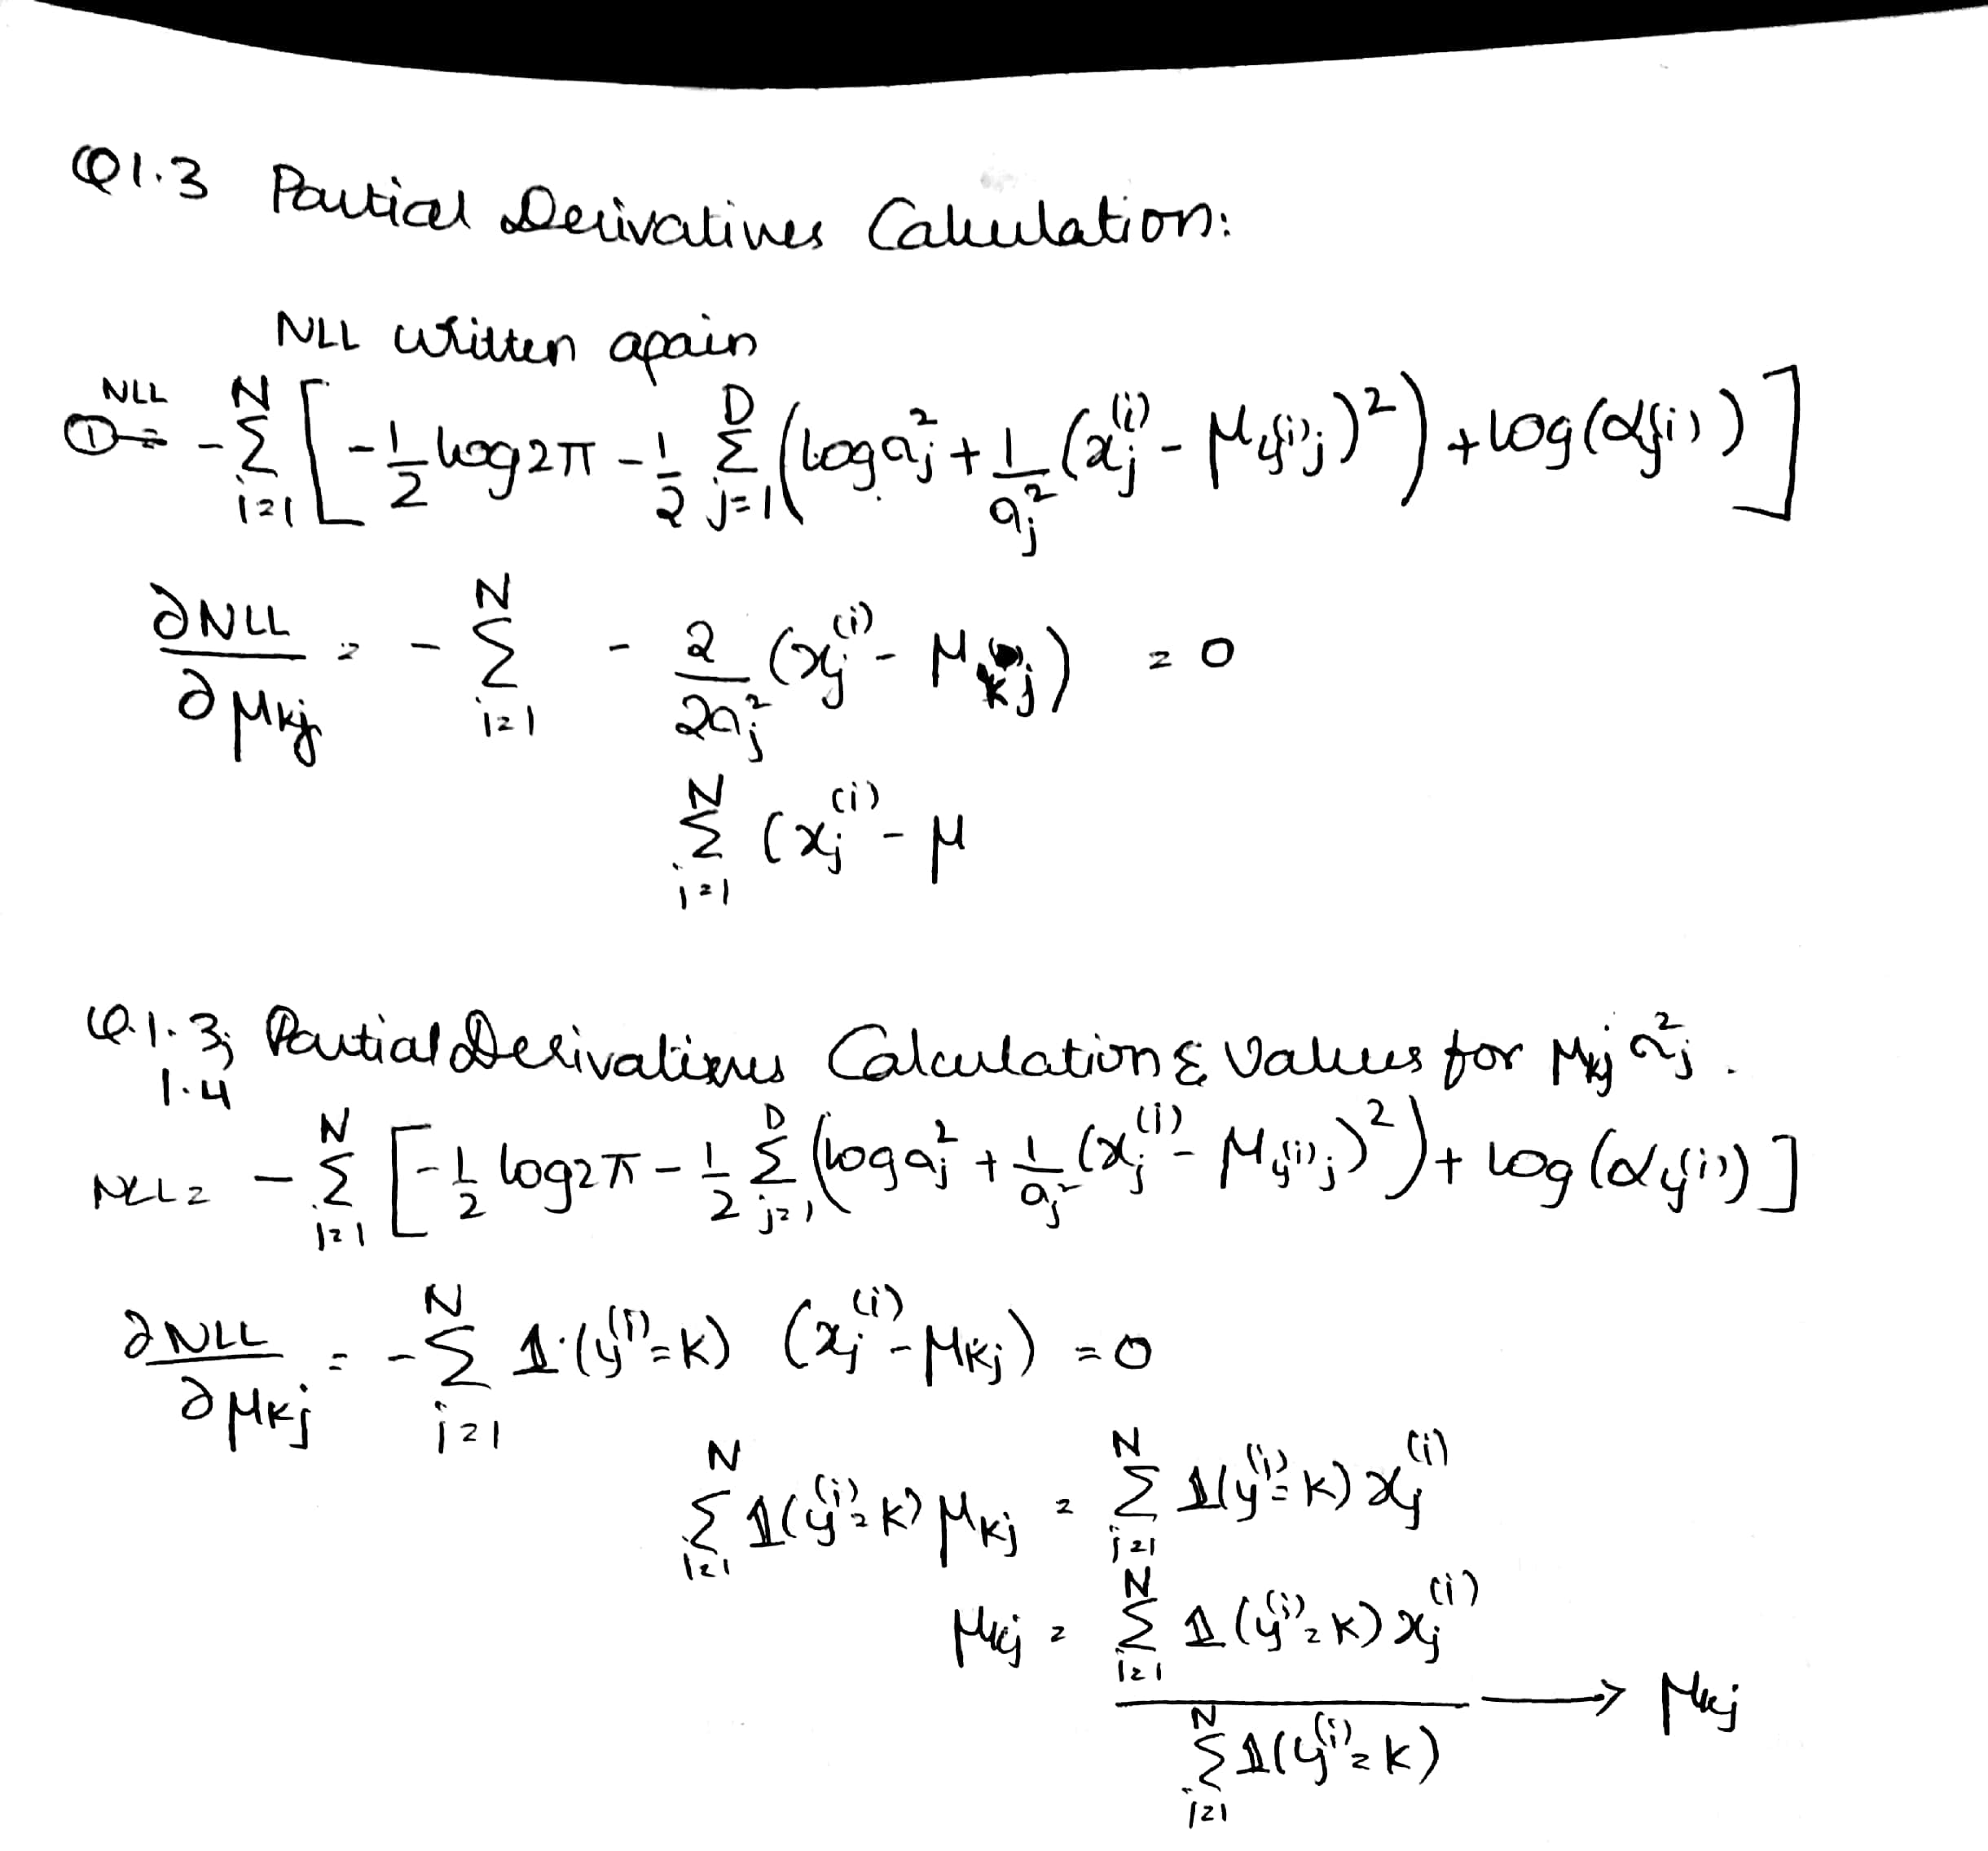 Q1.3 Partial Derivatives Calculation:
NLL written again
① NLL = -∑_{i=1}^{N} [ -1/2 log2π - 1/2 ∑_{j=1}^{D} (log σ_j^2 + 1/σ_j^2 (x_j^{(i)} - μ_{y^{(i)}j})^2) + log(α_{y^{(i)}}) ]
∂NLL/∂μ_{kj} = - ∑_{i=1}^{N} - 2/2σ_j^2 (x_j^{(i)} - μ_{kj}) = 0
∑_{i=1}^{N} (x_j^{(i)} - μ
Q.1.3, 1.4 Partial Derivatives Calculation & Values for μ_{kj} σ_j^2.
NLL = -∑_{i=1}^{N} [ -1/2 log2π - 1/2 ∑_{j=1}^{D} (log σ_j^2 + 1/σ_j^2 (x_j^{(i)} - μ_{y^{(i)}j})^2) + log(α_{y^{(i)}}) ]
∂NLL/∂μ_{kj} = -∑_{i=1}^{N} 𝟙(y^{(i)}=k) (x_j^{(i)} - μ_{kj}) = 0
∑_{i=1}^{N} 𝟙(y^{(i)}=k) μ_{kj} = ∑_{i=1}^{N} 𝟙(y^{(i)}=k) x_j^{(i)}
μ_{kj} = ∑_{i=1}^{N} 𝟙(y^{(i)}=k) x_j^{(i)} / ∑_{i=1}^{N} 𝟙(y^{(i)}=k) → μ_{kj}